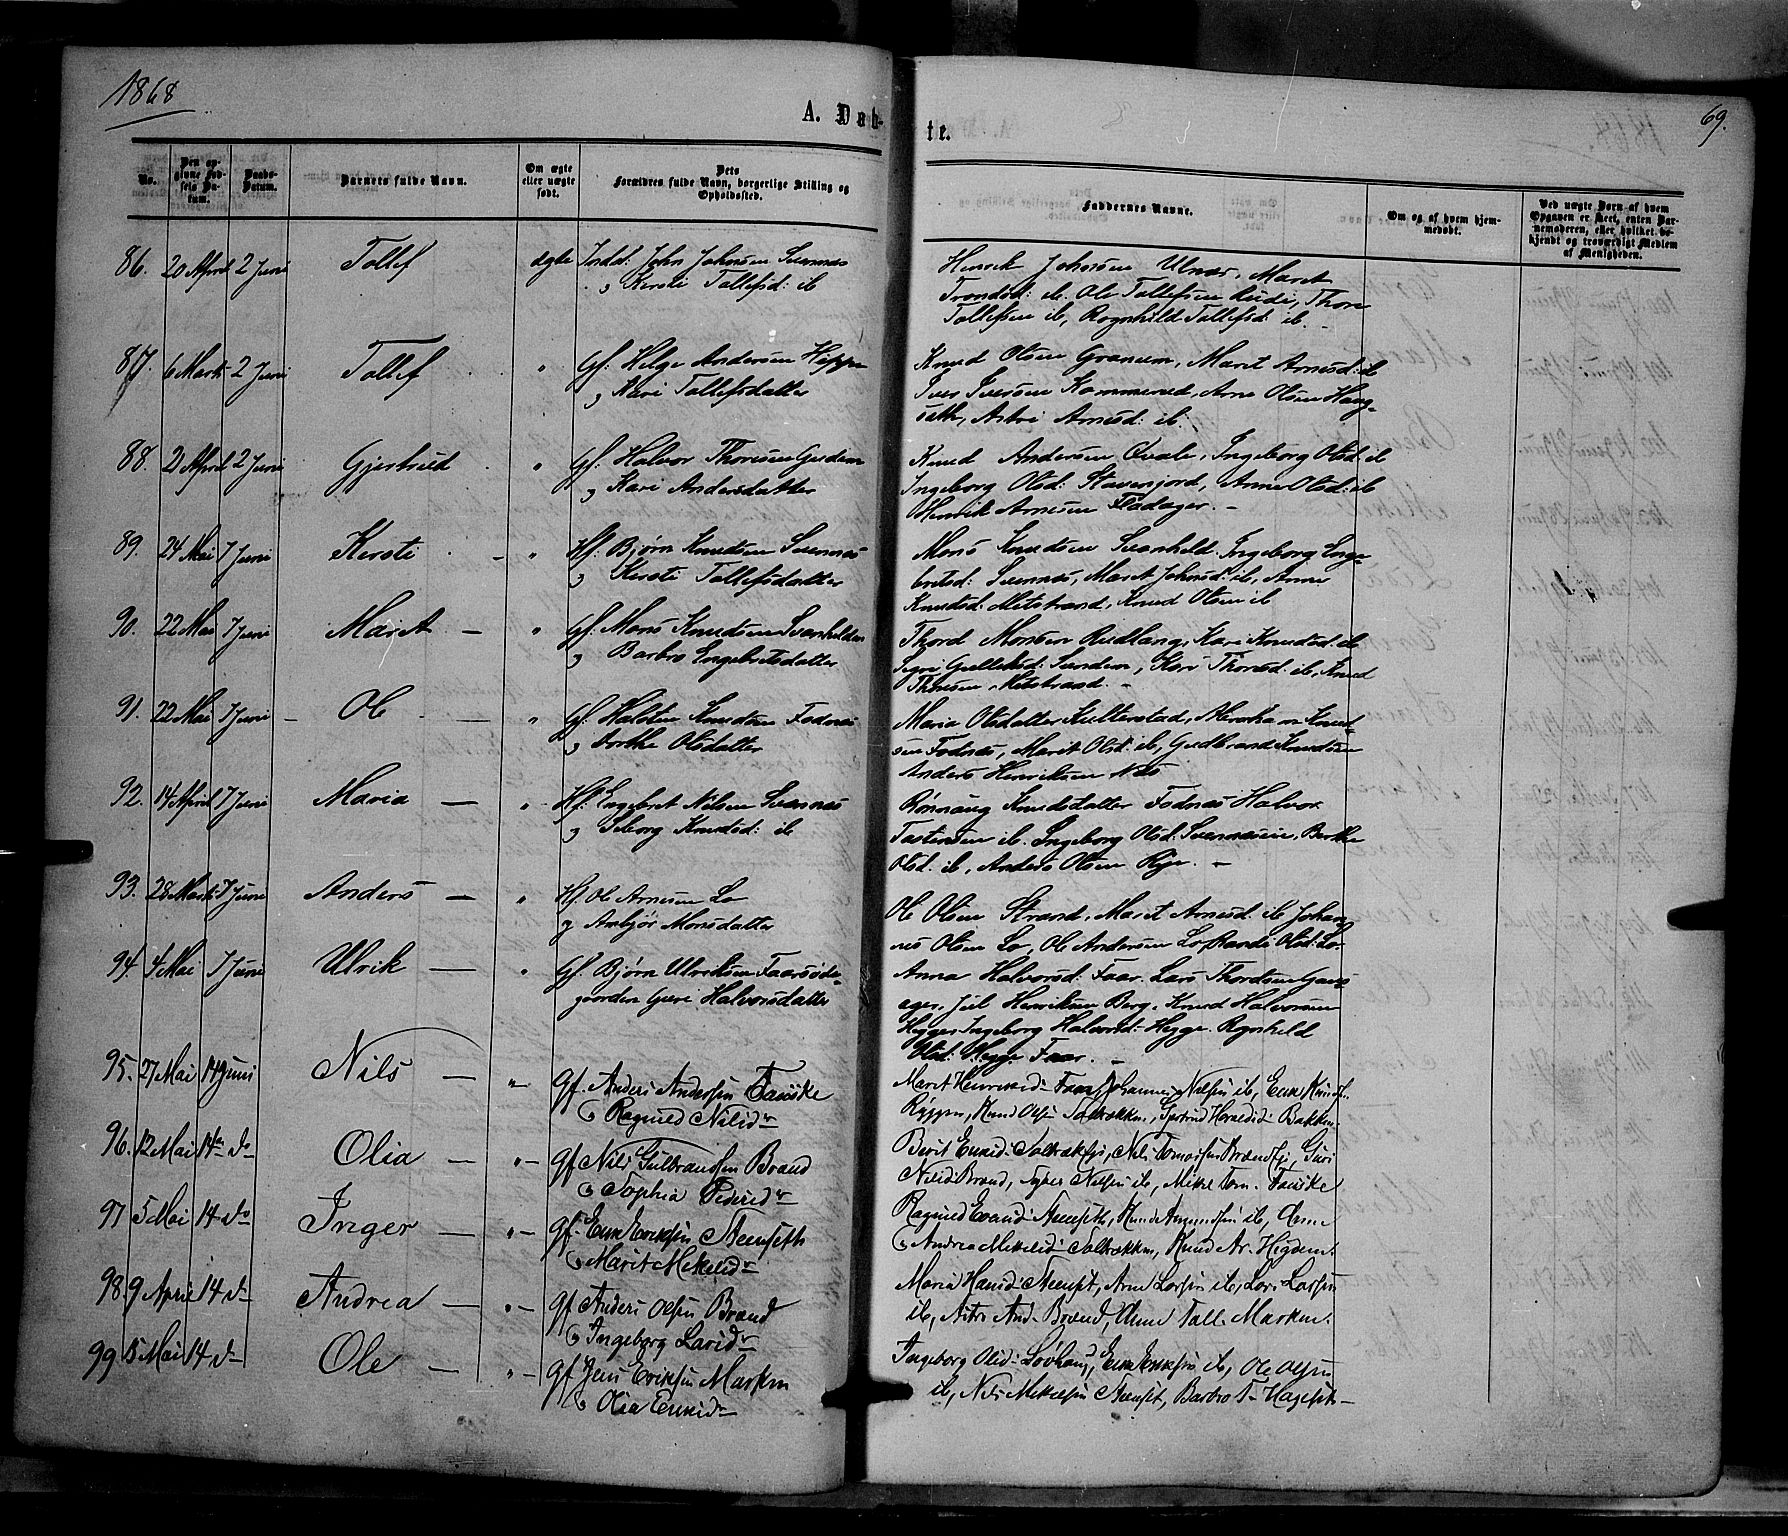 1868
A. Døb-
te.
69.
No.
Den op-
givne Fød-
sels Da-
tum.
Daabs-
Datum.
Barnets fulde Navn.
Om ægte
eller uægte
født.
Dets
Forældres fulde Navn, borgerlige Stilling og
Opholdssted.
Faddernes Navne.
Om og af hvem hjem-
medøbt.
Ved uægte Børn af hvem
Opgaven er skeet, enten Bar-
nemoderen, eller hvilket be-
kjendt og troværdigt Medlem
af Menigheden.
86. 20 April 2 Juni Tollef ægte Indst. John Johnsen Svennæs
og Kersti Tollefsd: ib
Henrik Johnsen Ulnæs, Marit
Trondsd: ib. Ole Tollefsen Rudi, Thore
Tollefsen ib, Rognhild Tollefsd: ib. -
87. 6 Marts 2 Juni Tollef " Gf: Helge Andersen
og Kari Tollefsdatter
Knud Olsen Granum, Marit Arnesd: ib
Iver Iversen Kommerud, Arne Olsen Haug-
seth, Astri Arnesd: ib.
88. 21 April 2 Juni Gjertrud " Gf: Halvor Thoresen
og Kari Andersdatter
Knud Andersen Qvale, Ingeborg Olsd: ib
Ingeborg Olsd: Stavenjord, Anne Olsd: ib
Henrik Arnesen Fladager. -
89. 24 Mai 7 Juni Kersti - " Hf: Bjørn Knudsen Svennæs
og Kersti Tollefsdatter
Mons Knudsen Svanheld. Ingeborg Enge-
bretsd: Svennæs, Marit Johnsd: ib, Anne
Knudsd: Midstrand, Knud Olsen ib
90. 22 Mai 7 Juni Marit - " Gf: Mons Knudsen Svanhelden
og Barbro Engebretsdatter
Thord Monsen Rudlang, Kari Knudsd: ib
Sigri Gulleksd: Sundem, Kari Thoresd: ib, Knud
Thoresen, Midstrand. -
91. 22 Mai 7 Juni - Ole - " Gf: Halsten Knudsen Fodnæs
og Dorthe Olsdatter
Maria Olsdatter Kultenstad, Abraham Knud-
sen Fodnæs, Marit Olsd: ib, Gudbrand Knudsen
Anders Henriksen Næs
92. 14 April 7 Juni Maria - " Hf: Engebret Nilsen Svennæs
og Seborg Knudsd: ib
Rønnaug Knudsdatter Fodnæs Halvor
Tostensen ib. Ingeborg Olsd: Svennæseie, Berthe
Olsd: ib, Anders Olsen Rye. -
93. 28 Marts 7 Juni Anders - " Hf. Ole Arnesen Lo
og Ambjør Monsdatter
Ole Olsen Strand, Marit Arnesd. ib Johan-
nes Olsen Lo, Ole Andersen Lo, Randi Olsd: Lo
94. 4 Mai 7 Juni Ulrik - " Gf: Bjørn Ulriksen Faarsøde-
gaarden Guri Halvorsdatter
Anna Halvorsd: Faar. Lars Thordsen
ager. Juel Henriksen Berg, Knud Halvorsen
Hegge, Ingeborg Halvorsd: Hegge. Rgnhild
Olsd: Hegge Faar. -
95. 27 Mai 14 Juni Nils - " - Gf. Anders Andersen Fauske
og Ragnild Nilsdr
Marit Henriksd: Faar, Johannes Nilsen ib, Erik Knuds.
Røggen, Knud Olsen Solbrækken, Gjertrud Haraldsd: Bakken
96. 12 Mai 14 do Olia - " - Gf Nils Gulbrandsen Brænd
og Sophia Pedersdr
Berit Eriksd: Solbræk, Nils Tomassen Brænd, Guri
Nilsd: Brænd, Syver Nilsen ib, Mikkel Tom. Fauske
97 5 Mai 14 do Inger " - Gf. Erik Eriksen Steenseth
og Marit Mikkelsdr
Ragnild Evensd: Steenseth, Knud Amundsen ib, Anne
og Andrea Mikkelsd: Solbrækken, Knud Ar. Higden
98. 9 April 14 do Andrea - " - Gf Anders Olsen Brænd
og Ingeborg Larsdr
Maria Hansd: Steenset, Arne Larsen ib, Lars Larsen
ib, Astri And. Brænd, Anne Toll. Marken.
99 15 Mai 14 do Ole - " - Gf Jens Eriksen Marken
og Olia Eriksdr
Ingeborg Olsd: Løvhaug, Erik Eriksen ib, Ole Olsen
ib, Nils Mikkelsen Steenset, Barbro T- Hageset -